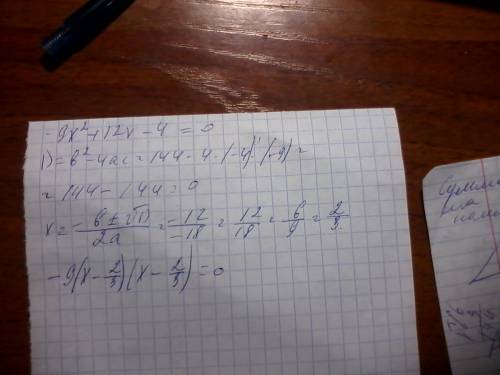 -9x²+12x-4=0
D=b²-4ac=144-4·(-4)·(-9)=
=144-144=0
x=\frac{-b±√D}{2a}=\frac{-12}{-18}=\frac{12}{18}=\frac{6}{9}=\frac{2}{3}.
-9(x-\frac{2}{3})(x-\frac{2}{3})=0